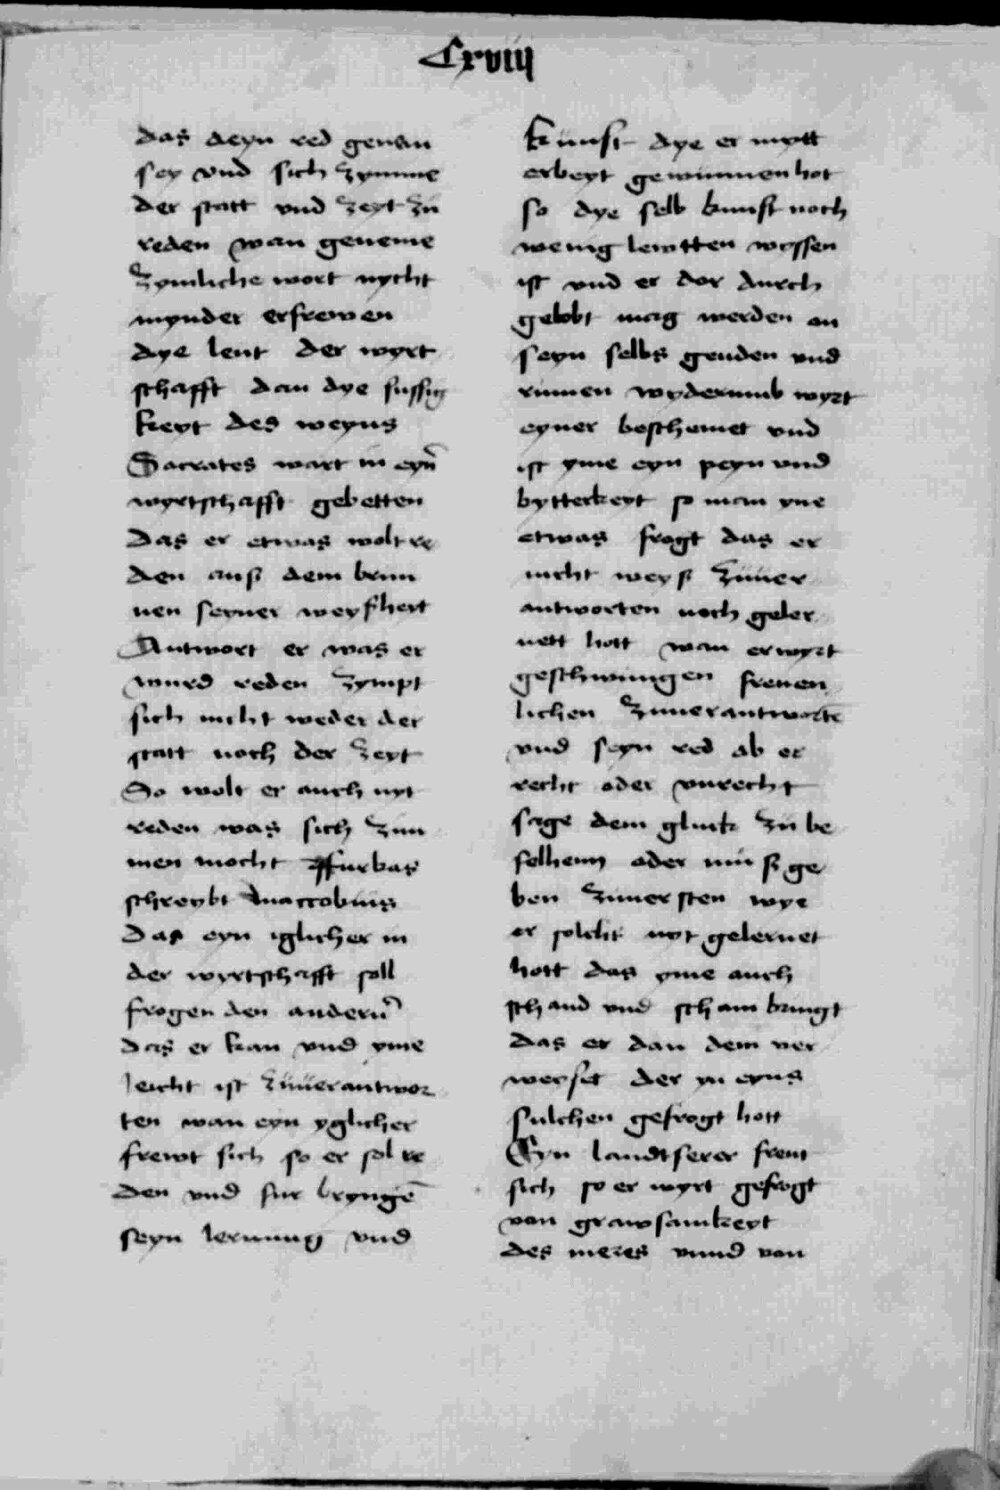 Cxviij
das deyn red genem
sey vnd sich zymme
der statt vnd zeyt zu
reden wan geneme
zymliche wort nycht
mynder erfrewen
dye leut der wyrt
schafft dan dye sussig
keyt des weyns
Socrates wart in eyn̄
wyrtschafft gebetten
das er etwas wolt re
den auß dem brun
nen seyner weyßheit
Antwort er was er
wurd reden zympt
sich nicht weder der
statt noch der zeyt
So wolt er auch nyt
reden was sich zim
men mocht ffurbas
schreybt Macrobius
das eyn iglicher in
der wyrtschafft soll
frogen den andern̄
das er kan vnd yme
leicht ist zuuerantwor
ten wan eyn yglicher
frewt sich so er sol re
den vnd fur bryngē
seyn lernung vnd
kunst dye er mytt
erbeyt gewunnen hot
so dye selb kunst noch
wenig lewtten wyssen
ist vnd er dor durch
gelobt mag werden on
seyn selbs geuden vnd
rumen wyderumb wyrt
eyner beschemet vnd
ist yme eyn peyn vnd
bytterkeyt so man yne
etwas frogt das er
nicht weyß zuuer
antworten noch geler
nett hott wan er wyrt
geschwungen freuen
lichen zuuerantwortē
vnd seyn red ab er
recht oder vnrecht
sage dem gluck zu be
felhenn oder muß ge
ben zuuersten wye
er solchs nyt gelernet
hott das yme auch
schand vnd scham bringt
das er dan dem ver
weyset der yn eyns
sulchen gefrogt hott
Eyn landtferer freut
sich so er wyrt gefrogt
von grawsamkeyt
des meres vnnd von